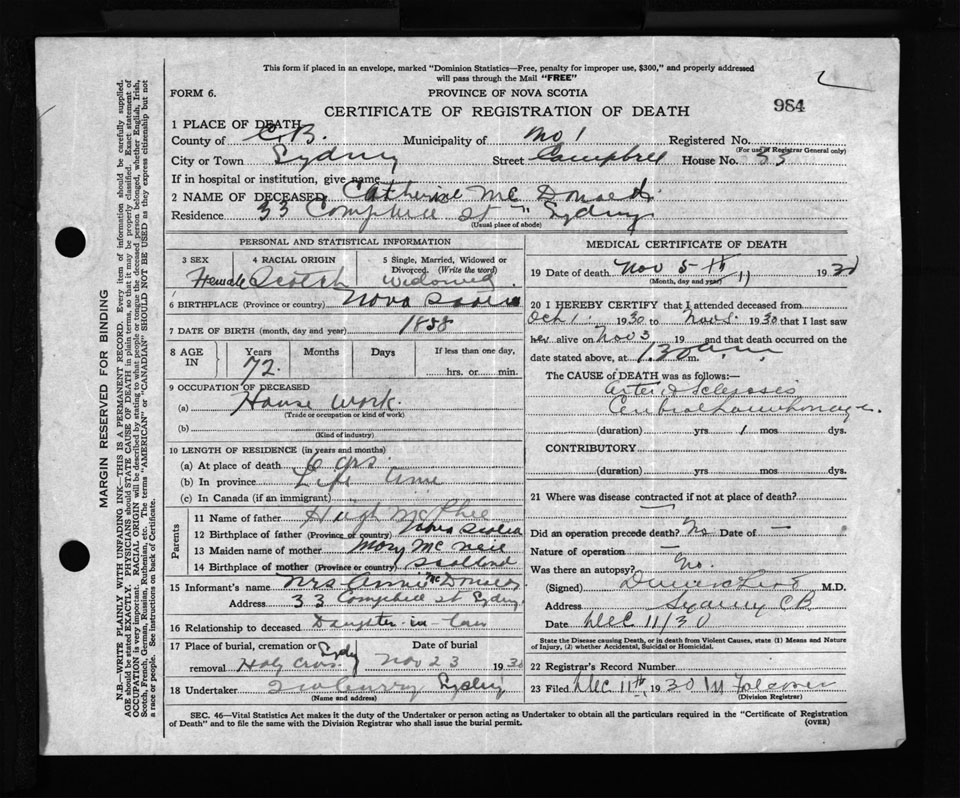 This form if placed in an envelope, marked "Dominion Statistics—Free, penalty for improper use, $300," and properly addressed
will pass through the Mail "FREE"
FORM 6.
PROVINCE OF NOVA SCOTIA
984
CERTIFICATE OF REGISTRATION OF DEATH
1 PLACE OF DEATH
County of C.B. Municipality of No 1 Registered No.
(For use of Registrar General only)
City or Town Sydney Street Campbell House No. 33
If in hospital or institution, give name
2 NAME OF DECEASED Catherine Mc Donald
Residence 33 Campbell St Sydney
(Usual place of abode)
PERSONAL AND STATISTICAL INFORMATION
3 SEX 4 RACIAL ORIGIN 5 Single, Married, Widowed or
Divorced. (Write the word)
Female Scotch Widowed
6 BIRTHPLACE (Province or country) Nova Scotia
7 DATE OF BIRTH (month, day and year) 1858
8 AGE IN Years Months Days If less than one day,
72 hrs. or min.
9 OCCUPATION OF DECEASED
(a) House Work.
(Trade or occupation or kind of work)
(b)
(Kind of industry)
10 LENGTH OF RESIDENCE (in years and months)
(a) At place of death 6 yrs.
(b) In province Life time
(c) In Canada (if an immigrant)
Parents
11 Name of father Hugh McPhee
12 Birthplace of father (Province or country) Nova Scotia
13 Maiden name of mother Mary Mc Neil
14 Birthplace of mother (Province or country) Scotland
15 Informant's name Mrs Annie McDonald
Address 33 Campbell St Sydney
16 Relationship to deceased Daughter-in-law
17 Place of burial, cremation or Sydney Date of burial
removal Holy Cross Nov 23 1930
18 Undertaker Sydney
(Name and address)
MEDICAL CERTIFICATE OF DEATH
19 Date of death Nov 5th 1930
(Month, day and year)
20 I HEREBY CERTIFY that I attended deceased from
Oct 1. 1930 to Nov 5. 1930 that I last saw
her alive on Nov 3 19 and that death occurred on the
date stated above, at 1.30 a.m. m.
The CAUSE of DEATH was as follows:—
Arterio Sclerosis
Cerebral haemorrhage.
(duration) yrs 1 mos dys.
CONTRIBUTORY
(duration) yrs. mos. dys.
21 Where was disease contracted if not at place of death?
Did an operation precede death? No Date of —
Nature of operation —
Was there an autopsy? No.
(Signed) M.D.
Address Sydney CB
Date Dec 11/30
State the Disease causing Death, or in death from Violent Causes, state (1) Means and Nature
of Injury, (2) whether Accidental, Suicidal or Homicidal.
22 Registrar's Record Number
23 Filed Dec 11th 1930
(Division Registrar)
SEC. 46—Vital Statistics Act makes it the duty of the Undertaker or person acting as Undertaker to obtain all the particulars required in the "Certificate of Registration
of Death" and to file the same with the Division Registrar who shall issue the burial permit.
(OVER)
MARGIN RESERVED FOR BINDING
N.B.—WRITE PLAINLY WITH UNFADING INK—THIS IS A PERMANENT RECORD. Every item of information should be carefully supplied.
AGE should be stated EXACTLY. PHYSICIANS should STATE CAUSE OF DEATH in plain terms, so that it may be properly classified. Exact statement of
OCCUPATION is very important. RACIAL ORIGIN will be described by stating to what people or tongue the deceased person belonged, whether English, Irish,
Scotch, French, German, Russian, Ruthenian, etc. The terms "AMERICAN" or "CANADIAN" SHOULD NOT BE USED as they express citizenship but not
a race or people. See instructions on back of Certificate.